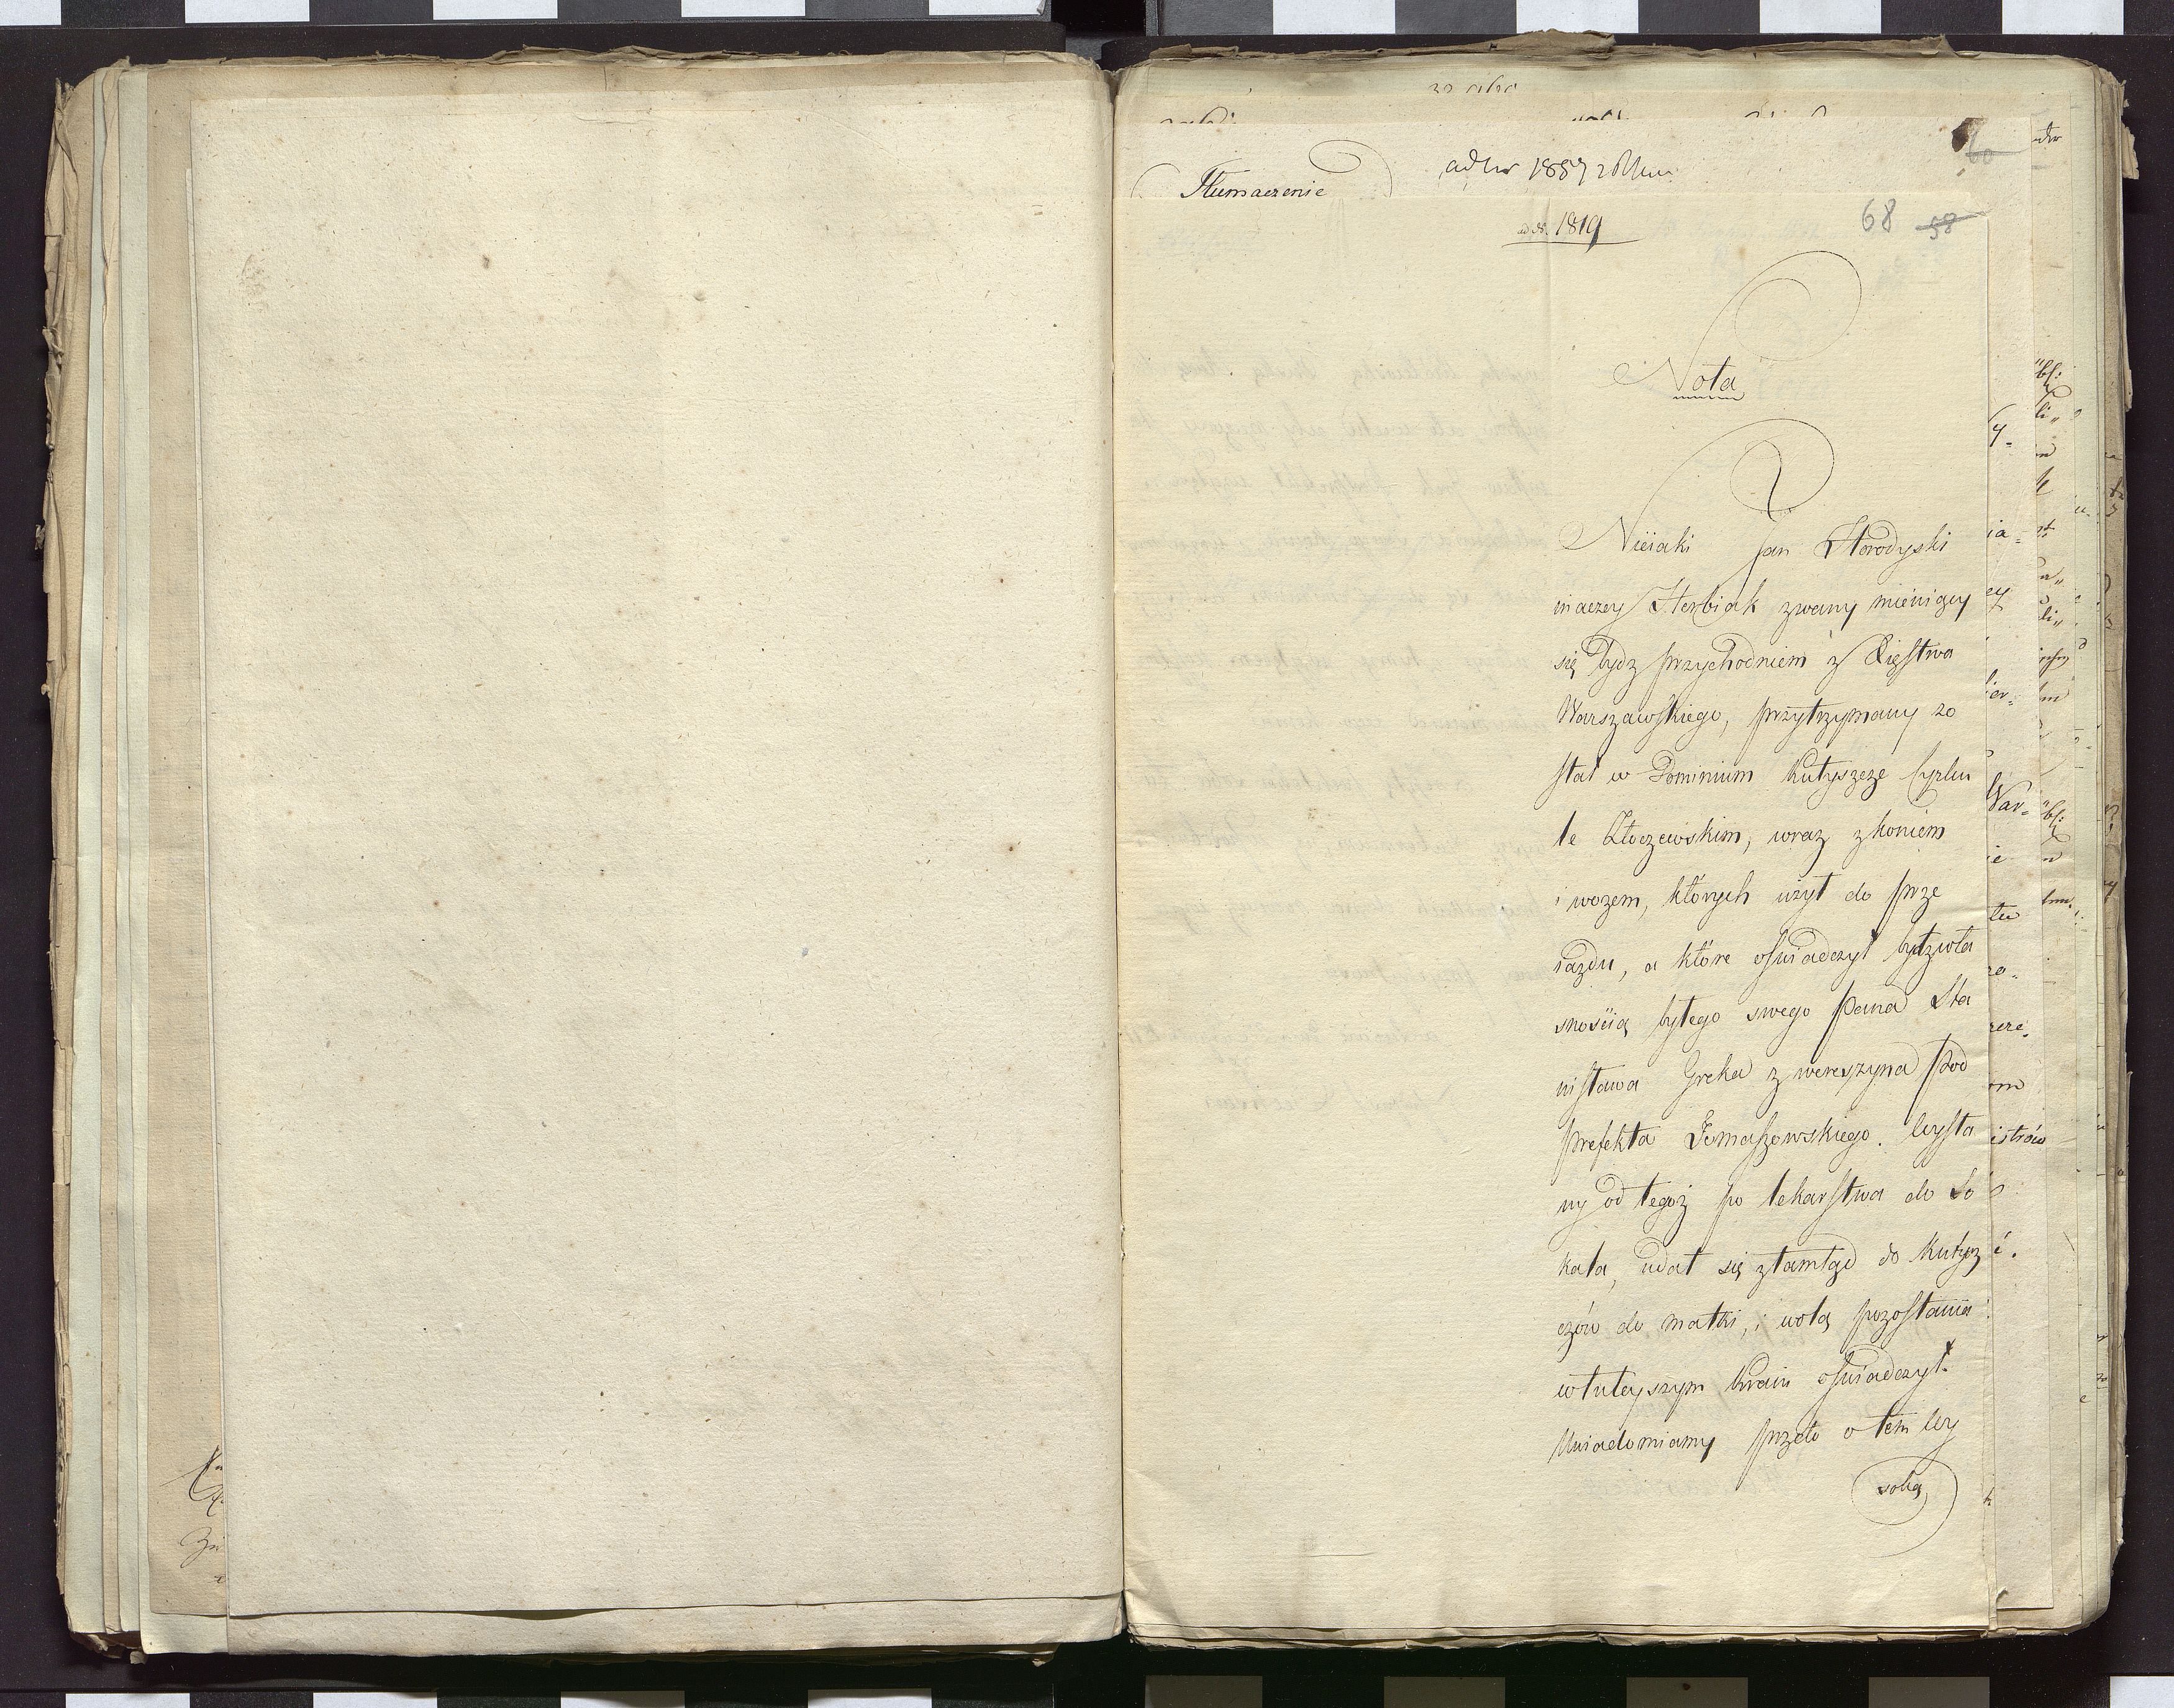 Tłumaczenie
ad Nr 1819
68 58
Nota
Nieiaki Jan Horodyski
inaczey Herbiak zwany mieniący
się bydz przychodniem z Xięstwa
Warszawskiego, przytrzymany zo
stał w Dominium Kutyszcze Cyrku
le Złoczewskim, wraz z koniem
i wozem, których użył do prze
iazdu, a które oświadczył bydź wła
snością byłego swego Pana Sta
nisława Greka z wereszyna Pod
prefekta Tomaszowskiego. Wysła
ny od tegoż po lekarstwa do So
kala, udał się ztamtąd do Kutysz
czów do matki, i wolą pozostania
w tuteyszym Kraiu oświadczył.
Uwiadomiamy przeto o tem Wy
soką